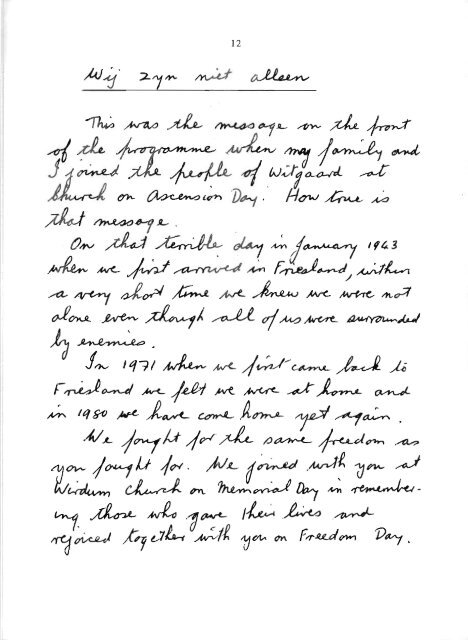 12
Wij zyn niet alleen
This was the message on the front
of the programme when my family and
I joined the people of Witgaard at
Church on Ascension Day. How true is
that message.
On that terrible day in January 1943
when we first arrived in Friesland, within
a very short time we knew we were not
alone even though all of us were surrounded
by enemies.
In 1971 when we first came back to
Friesland we felt we were at home and
in 1980 we have come home yet again.
We fought for the same freedom as
you fought for. We joined with you at
Wirdum Church on Memorial Day in remember-
ing those who gave their lives and
rejoiced together with you on Freedom Day.